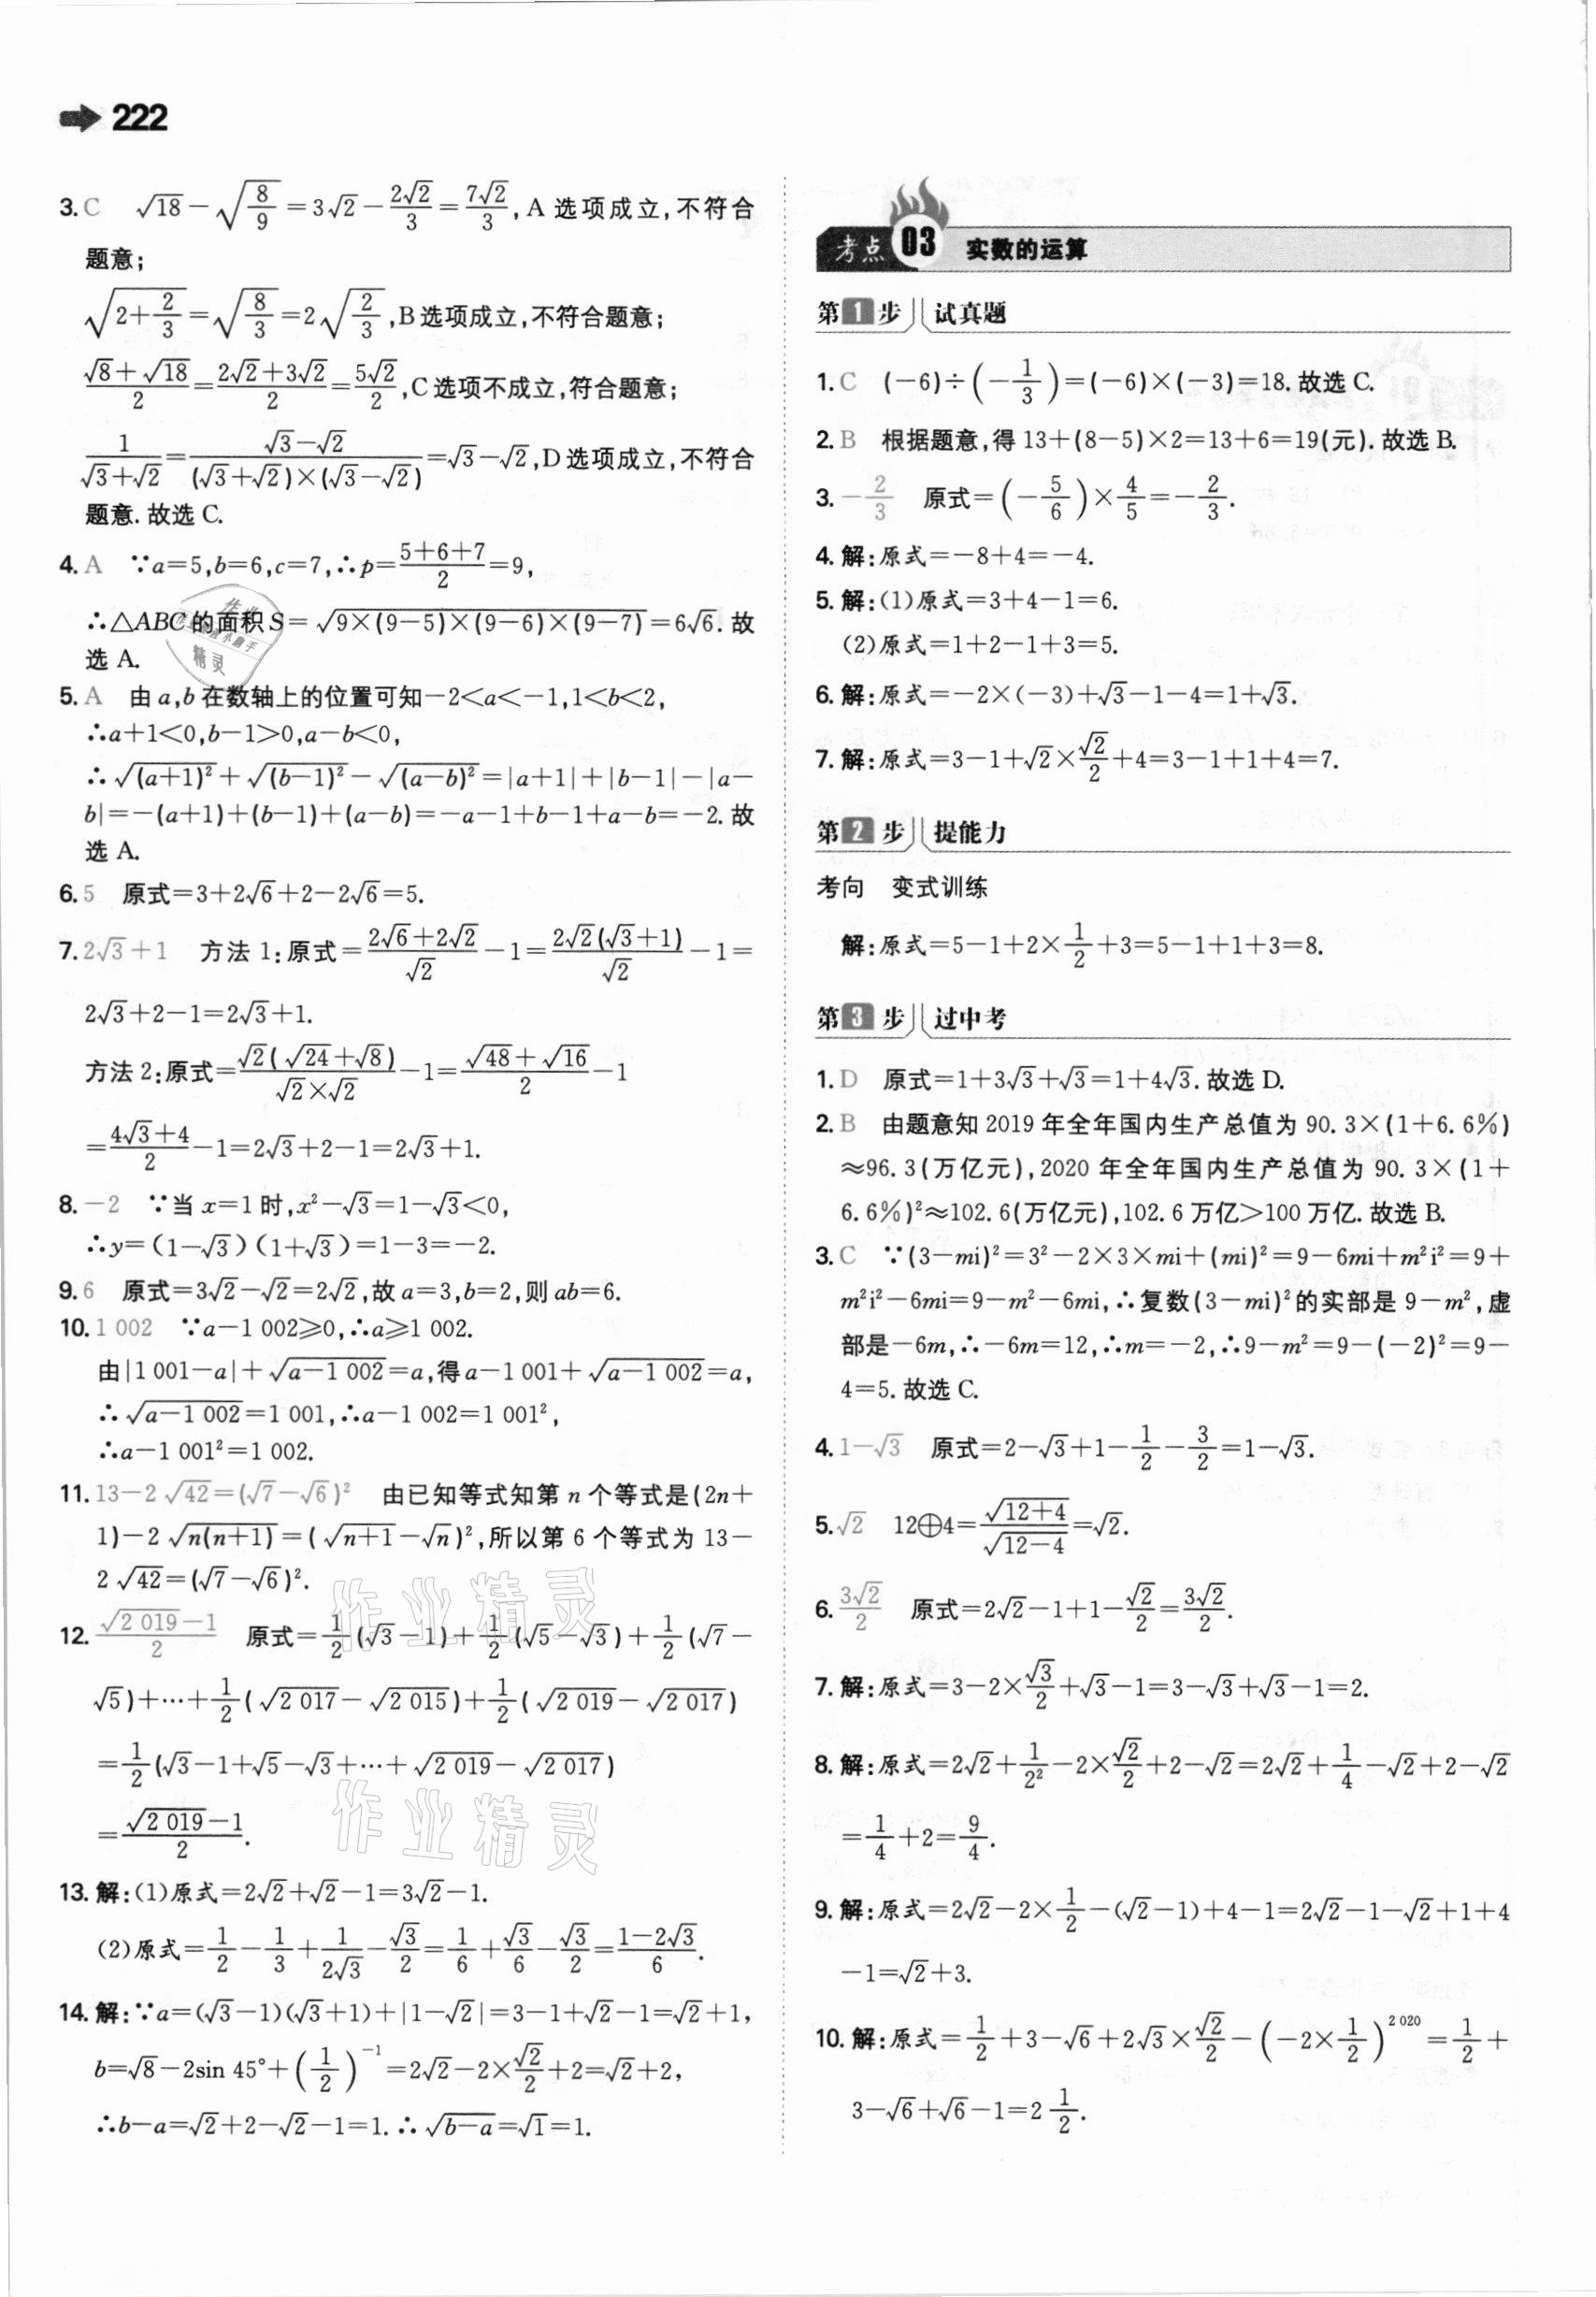 222
3. C √18－√(8/9)＝3√2－2√2/3＝7√2/3,A 选项成立,不符合
题意;
√(2＋2/3)＝√(8/3)＝2√(2/3),B选项成立,不符合题意;
(√8＋√18)/2＝(2√2＋3√2)/2＝5√2/2,C选项不成立,符合题意;
1/(√3＋√2)＝(√3－√2)/((√3＋√2)×(√3－√2))＝√3－√2,D选项成立,不符合
题意.故选 C.
4. A ∵a＝5,b＝6,c＝7,∴p＝(5＋6＋7)/2＝9,
∴△ABC的面积S＝√(9×(9－5)×(9－6)×(9－7))＝6√6.故
选 A.
5. A 由 a,b 在数轴上的位置可知－2<a<－1,1<b<2,
∴a＋1<0,b－1>0,a－b<0,
∴√((a＋1)²)＋√((b－1)²)－√((a－b)²)＝|a＋1|＋|b－1|－|a－
b|＝－(a＋1)＋(b－1)＋(a－b)＝－a－1＋b－1＋a－b＝－2.故
选 A.
6. 5 原式＝3＋2√6＋2－2√6＝5.
7. 2√3＋1 方法 1:原式＝(2√6＋2√2)/√2－1＝2√2(√3＋1)/√2－1＝
2√3＋2－1＝2√3＋1.
方法 2:原式＝√2(√24＋√8)/(√2×√2)－1＝(√48＋√16)/2－1
＝(4√3＋4)/2－1＝2√3＋2－1＝2√3＋1.
8. －2 ∵当 x＝1 时,x²－√3＝1－√3<0,
∴y＝(1－√3)(1＋√3)＝1－3＝－2.
9. 6 原式＝3√2－√2＝2√2,故 a＝3,b＝2,则 ab＝6.
10. 1 002 ∵a－1 002≥0,∴a≥1 002.
由|1 001－a|＋√(a－1 002)＝a,得a－1 001＋√(a－1 002)＝a,
∴√(a－1 002)＝1 001,∴a－1 002＝1 001²,
∴a－1 001²＝1 002.
11. 13－2√42＝(√7－√6)² 由已知等式知第 n 个等式是(2n＋
1)－2√(n(n＋1))＝(√(n＋1)－√n)²,所以第 6 个等式为 13－
2√42＝(√7－√6)².
12. (√2 019－1)/2 原式＝1/2(√3－1)＋1/2(√5－√3)＋1/2(√7－
√5)＋…＋1/2(√2 017－√2 015)＋1/2(√2 019－√2 017)
＝1/2(√3－1＋√5－√3＋…＋√2 019－√2 017)
＝(√2 019－1)/2.
13. 解:(1)原式＝2√2＋√2－1＝3√2－1.
(2)原式＝1/2－1/3＋1/(2√3)－√3/2＝1/6＋√3/6－√3/2＝(1－2√3)/6.
14. 解:∵a＝(√3－1)(√3＋1)＋|1－√2|＝3－1＋√2－1＝√2＋1,
b＝√8－2sin 45°＋(1/2)⁻¹＝2√2－2×√2/2＋2＝√2＋2,
∴b－a＝√2＋2－√2－1＝1.∴√(b－a)＝√1＝1.
考点 03 实数的运算
第1步 试真题
1. C (－6)÷(－1/3)＝(－6)×(－3)＝18.故选C.
2. B 根据题意,得13＋(8－5)×2＝13＋6＝19(元).故选B.
3. －2/3 原式＝(－5/6)×4/5＝－2/3.
4. 解:原式＝－8＋4＝－4.
5. 解:(1)原式＝3＋4－1＝6.
(2)原式＝1＋2－1＋3＝5.
6. 解:原式＝－2×(－3)＋√3－1－4＝1＋√3.
7. 解:原式＝3－1＋√2×√2/2＋4＝3－1＋1＋4＝7.
第2步 提能力
考向 变式训练
解:原式＝5－1＋2×1/2＋3＝5－1＋1＋3＝8.
第3步 过中考
1. D 原式＝1＋3√3＋√3＝1＋4√3.故选D.
2. B 由题意知 2019 年全年国内生产总值为 90.3×(1＋6.6%)
≈96.3(万亿元),2020 年全年国内生产总值为 90.3×(1＋
6.6%)²≈102.6(万亿元),102.6 万亿>100万亿.故选B.
3. C ∵(3－mi)²＝3²－2×3×mi＋(mi)²＝9－6mi＋m²i²＝9＋
m²i²－6mi＝9－m²－6mi,∴复数(3－mi)²的实部是 9－m²,虚
部是－6m,∴－6m＝12,∴m＝－2,∴9－m²＝9－(－2)²＝9－
4＝5.故选 C.
4. 1－√3 原式＝2－√3＋1－1/2－3/2＝1－√3.
5. √2 12⊕4＝√(12＋4)/√(12－4)＝√2.
6. 3√2/2 原式＝2√2－1＋1－√2/2＝3√2/2.
7. 解:原式＝3－2×√3/2＋√3－1＝3－√3＋√3－1＝2.
8. 解:原式＝2√2＋1/2²－2×√2/2＋2－√2＝2√2＋1/4－√2＋2－√2
＝1/4＋2＝9/4.
9. 解:原式＝2√2－2×1/2－(√2－1)＋4－1＝2√2－1－√2＋1＋4
－1＝√2＋3.
10. 解:原式＝1/2＋3－√6＋2√3×√2/2－(－2×1/2)²⁰²⁰＝1/2＋
3－√6＋√6－1＝2 1/2.
作业精灵
作业精灵